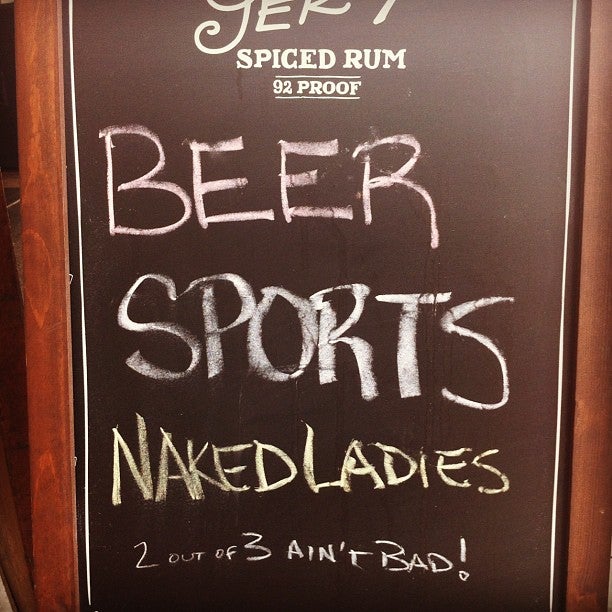 SPICED RUM
92 PROOF
BEER
SPORTS
NAKED LADIES
2 OUT OF 3 AIN'T BAD!